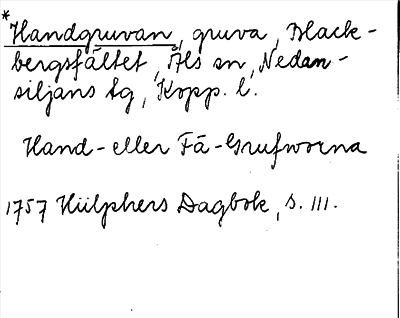 *Handgruvan, gruva, Black-
bergsfältet, Åls sn, Nedan-
siljans tg, Kopp. l.
Hand- eller Få-Grufworna
1757 Hülphers Dagbok, s. 111.